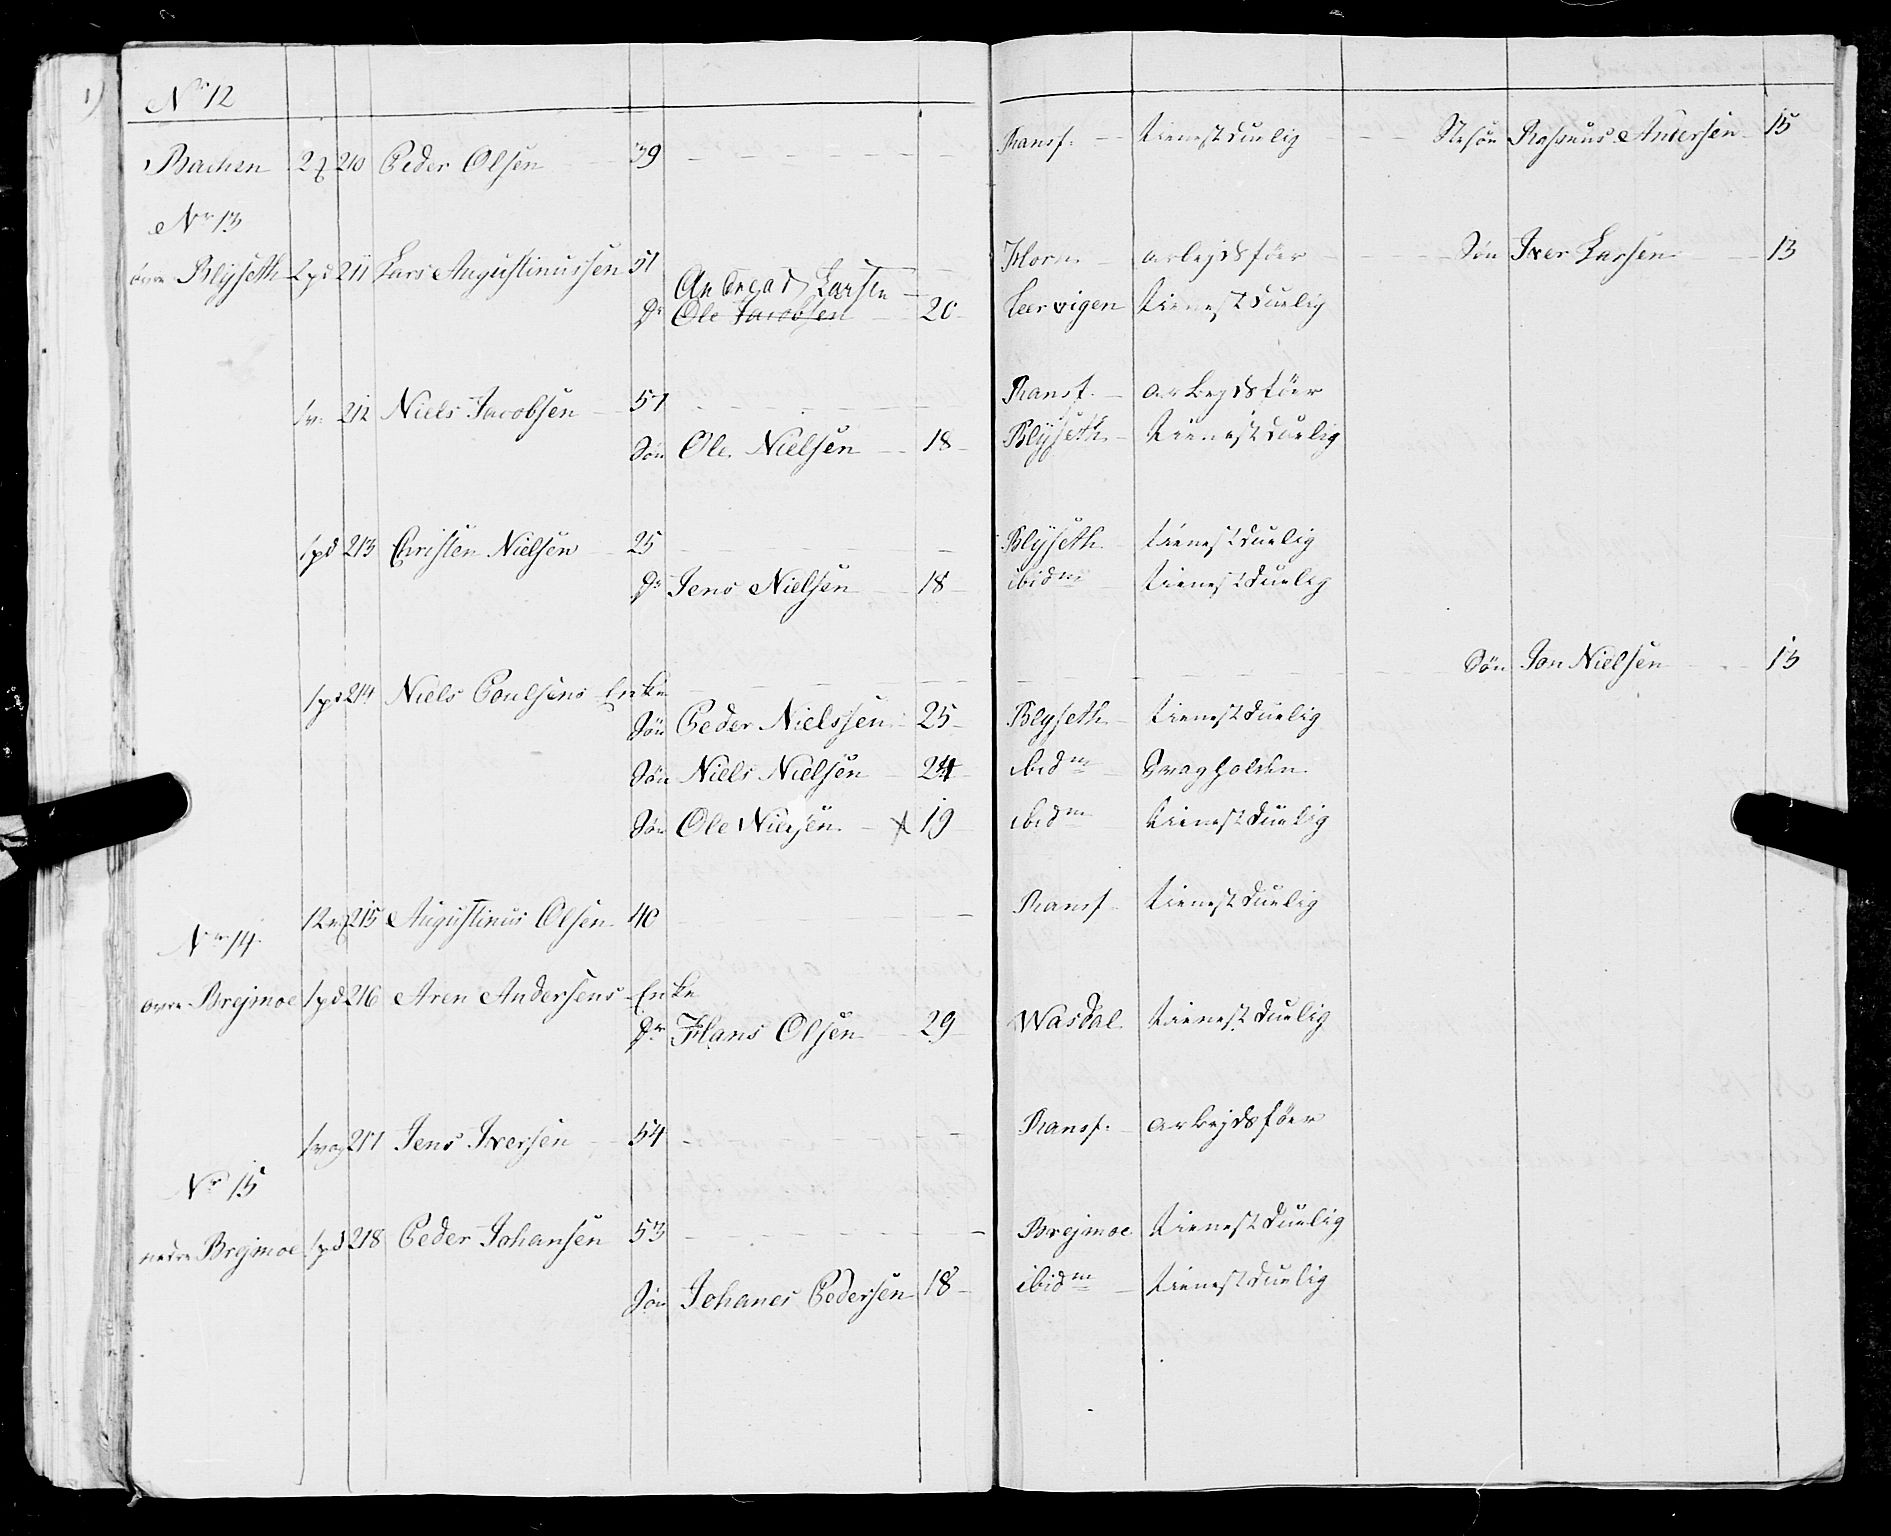 No 12
Bachen 210 Peder Olsen 39 Ransf. tienestduelig Stesøn Rasmus Andersen 15
Nr 13
øvre Blyseth 2pd 211 Lars Augustinussen 51 Horn arbejdsføer Søn Iver Larsen 13
Andreas Larsen
Dr Ole Jacobsen 20 Leervigen tienestduelig
1v 212 Niels Jacobsen 57 Ransf. arbejdsføer
Søn Ole Nielsen 18 Blyseth tienestduelig
1pd 213 Christen Nielsen 25 Blyseth tienestduelig
Dr Jens Nielsen 18 ibidm tienestduelig
1pd 214 Niels Poulsens Enke Søn Jon Nielsen 13
Søn Peder Nielssen 25 Blyseth tienestduelig
Søn Niels Nielsen 24 ibidm Svagholden
Søn Ole Nielsen x 19 ibidm tienestduelig
215 Augustinus Olsen 40 Ransf tienestduelig
Nr 14
øvre Brejmoe 1pd 216 Aren Andersens Enke
Dr Hans Olsen 29 Wasdal tienestduelig
1vog 217 Jens Iversen 54 Ransf. arbejdsføer
Nr 15
nedre Brejmoe 1pd 218 Peder Johansen 53 Brejmoe tienestduelig
Søn Johanes Pedersen 18 ibidm tienestduelig